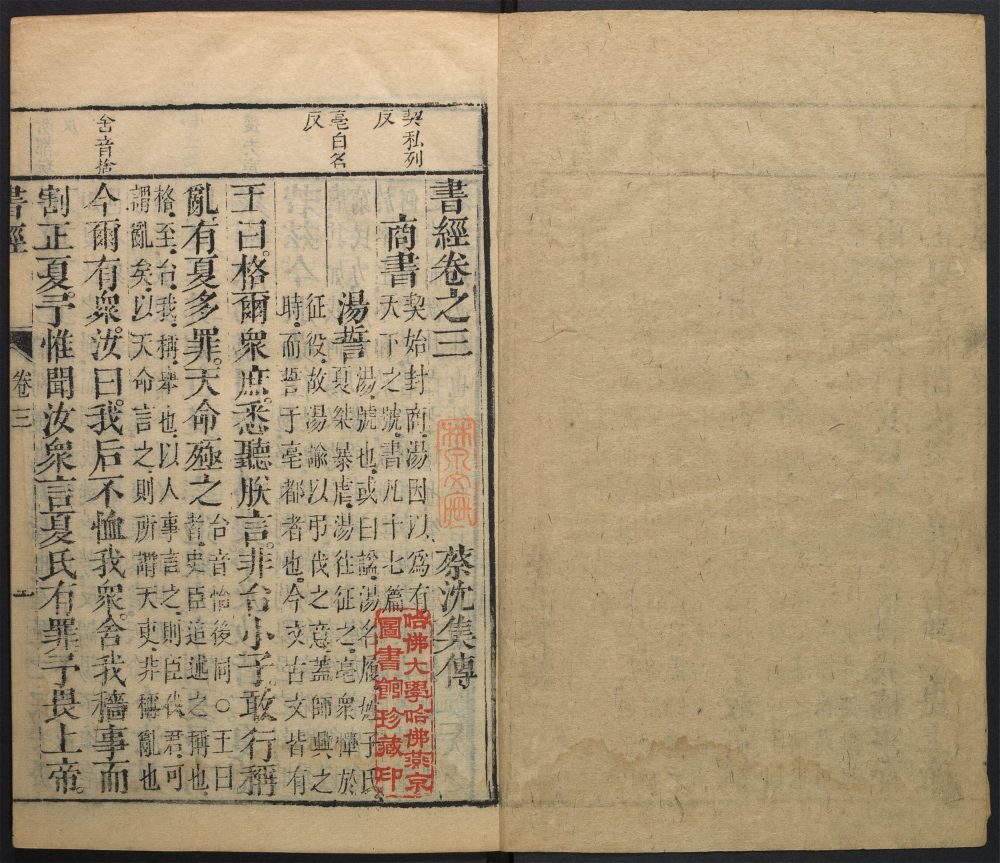 契私列
反
亳白名
反
舍音捨
書經卷之三 蔡沈集傳
商書 契始封商。湯因以爲有
天下之號。書凡十七篇
湯誓 湯號也。或曰諡。湯名履。姓子氏
夏桀暴虐。湯往征之。亳衆憚於
征役。故湯諭以弔伐之意。蓋師興之
時。而誓于亳都者也。今文古文皆有
王曰。格爾衆庶。悉聽朕言。非台小子。敢行稱
亂。有夏多罪。天命殛之 台音怡後同。○王曰
者。史臣追述之稱也
格。至。台。我。稱。舉也。以人事言之。則臣伐君。可
謂亂矣。以天命言之。則所謂天吏。非稱亂也
今爾有衆。汝曰。我后不恤我衆。舍我穡事而
割正夏。予惟聞汝衆言。夏氏有罪。予畏上帝。
書經 卷三 一
哈佛大學哈佛燕京
圖書館珍藏印